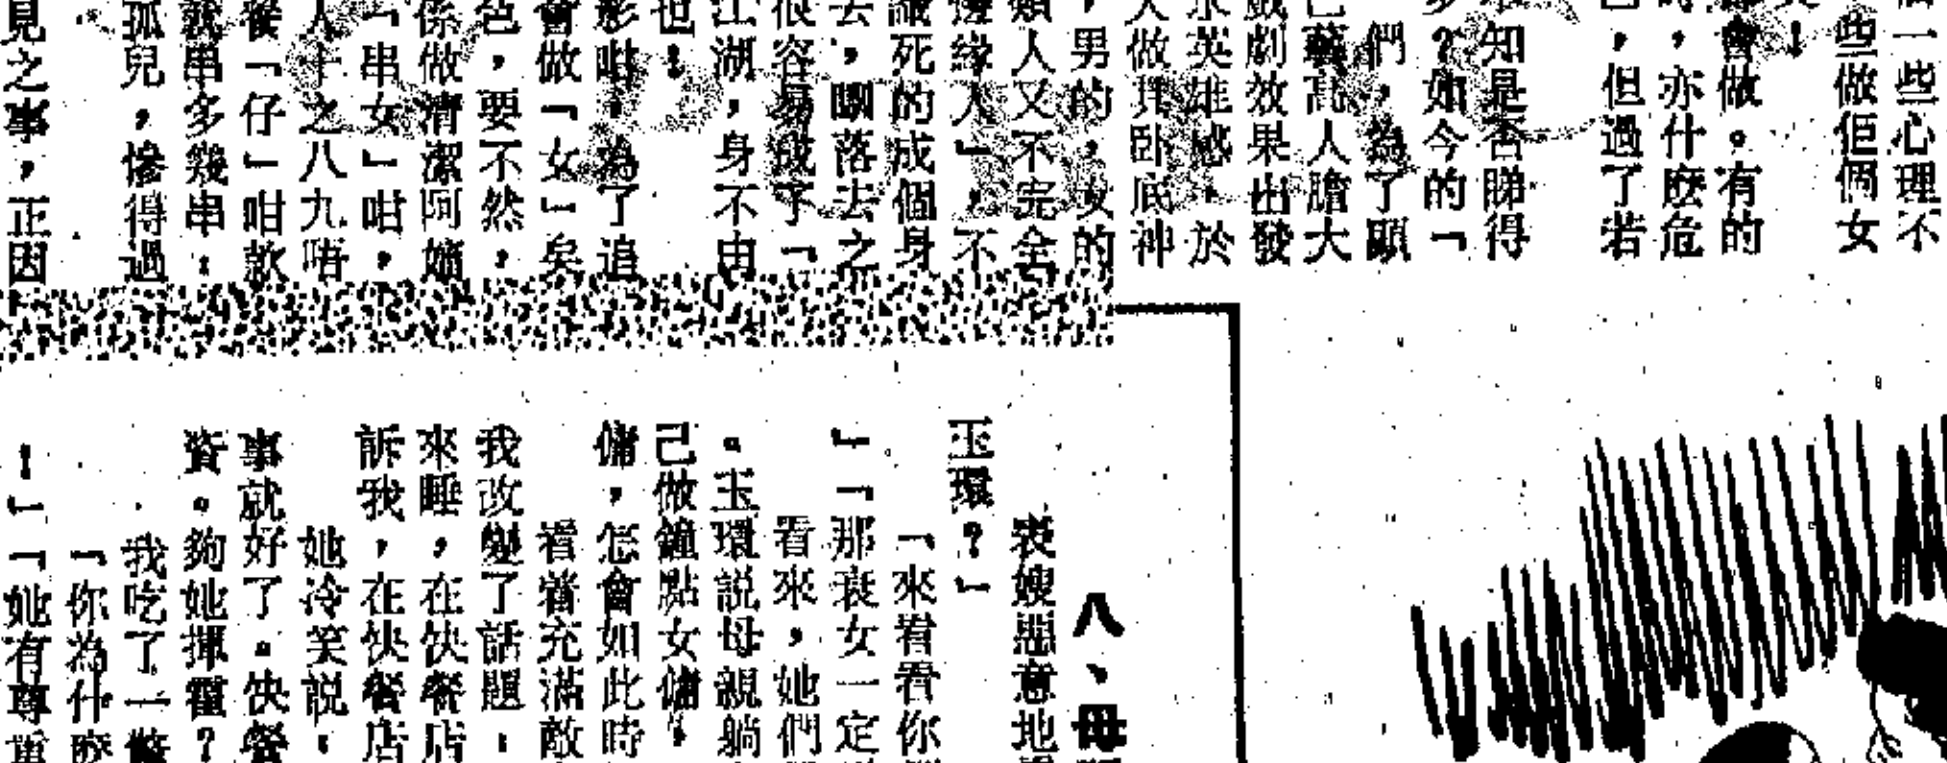 個一些心理不
些做佢倆女
都會做。有的
時，亦什麽危
，但過了若
知是否睇得
多？如今的「
們，為了顧
藝高人膽大
戲劇效果出發
英雄感，於
做其卧底神
，男的，女的
類人又不完全
邊緣人」，不
識死的成個身
去，瞓落去之
很容易成了「
江湖，身不由
也！
影咁，為了追
會做「女」矣
色，要不然，
係做清潔阿嬸
「串女」咁，
人十之八九唔
餐「仔」咁款
就串多幾串：
孤兒，慘得過
見之事，正因
八、母
表嫂惡意地
玉環？」
「來看看你
」「那衰女一定
看來，她們
。玉環説母親躺
己做鐘點女傭，
傭，怎會如此時
看着充滿敵
我改變了話題：
來睡，在快餐店
訴我，在快餐店
她冷笑説：
事就好了。快餐
資。夠她揮霍？
我吃了一驚
「你為什麽
！」「她有尊重